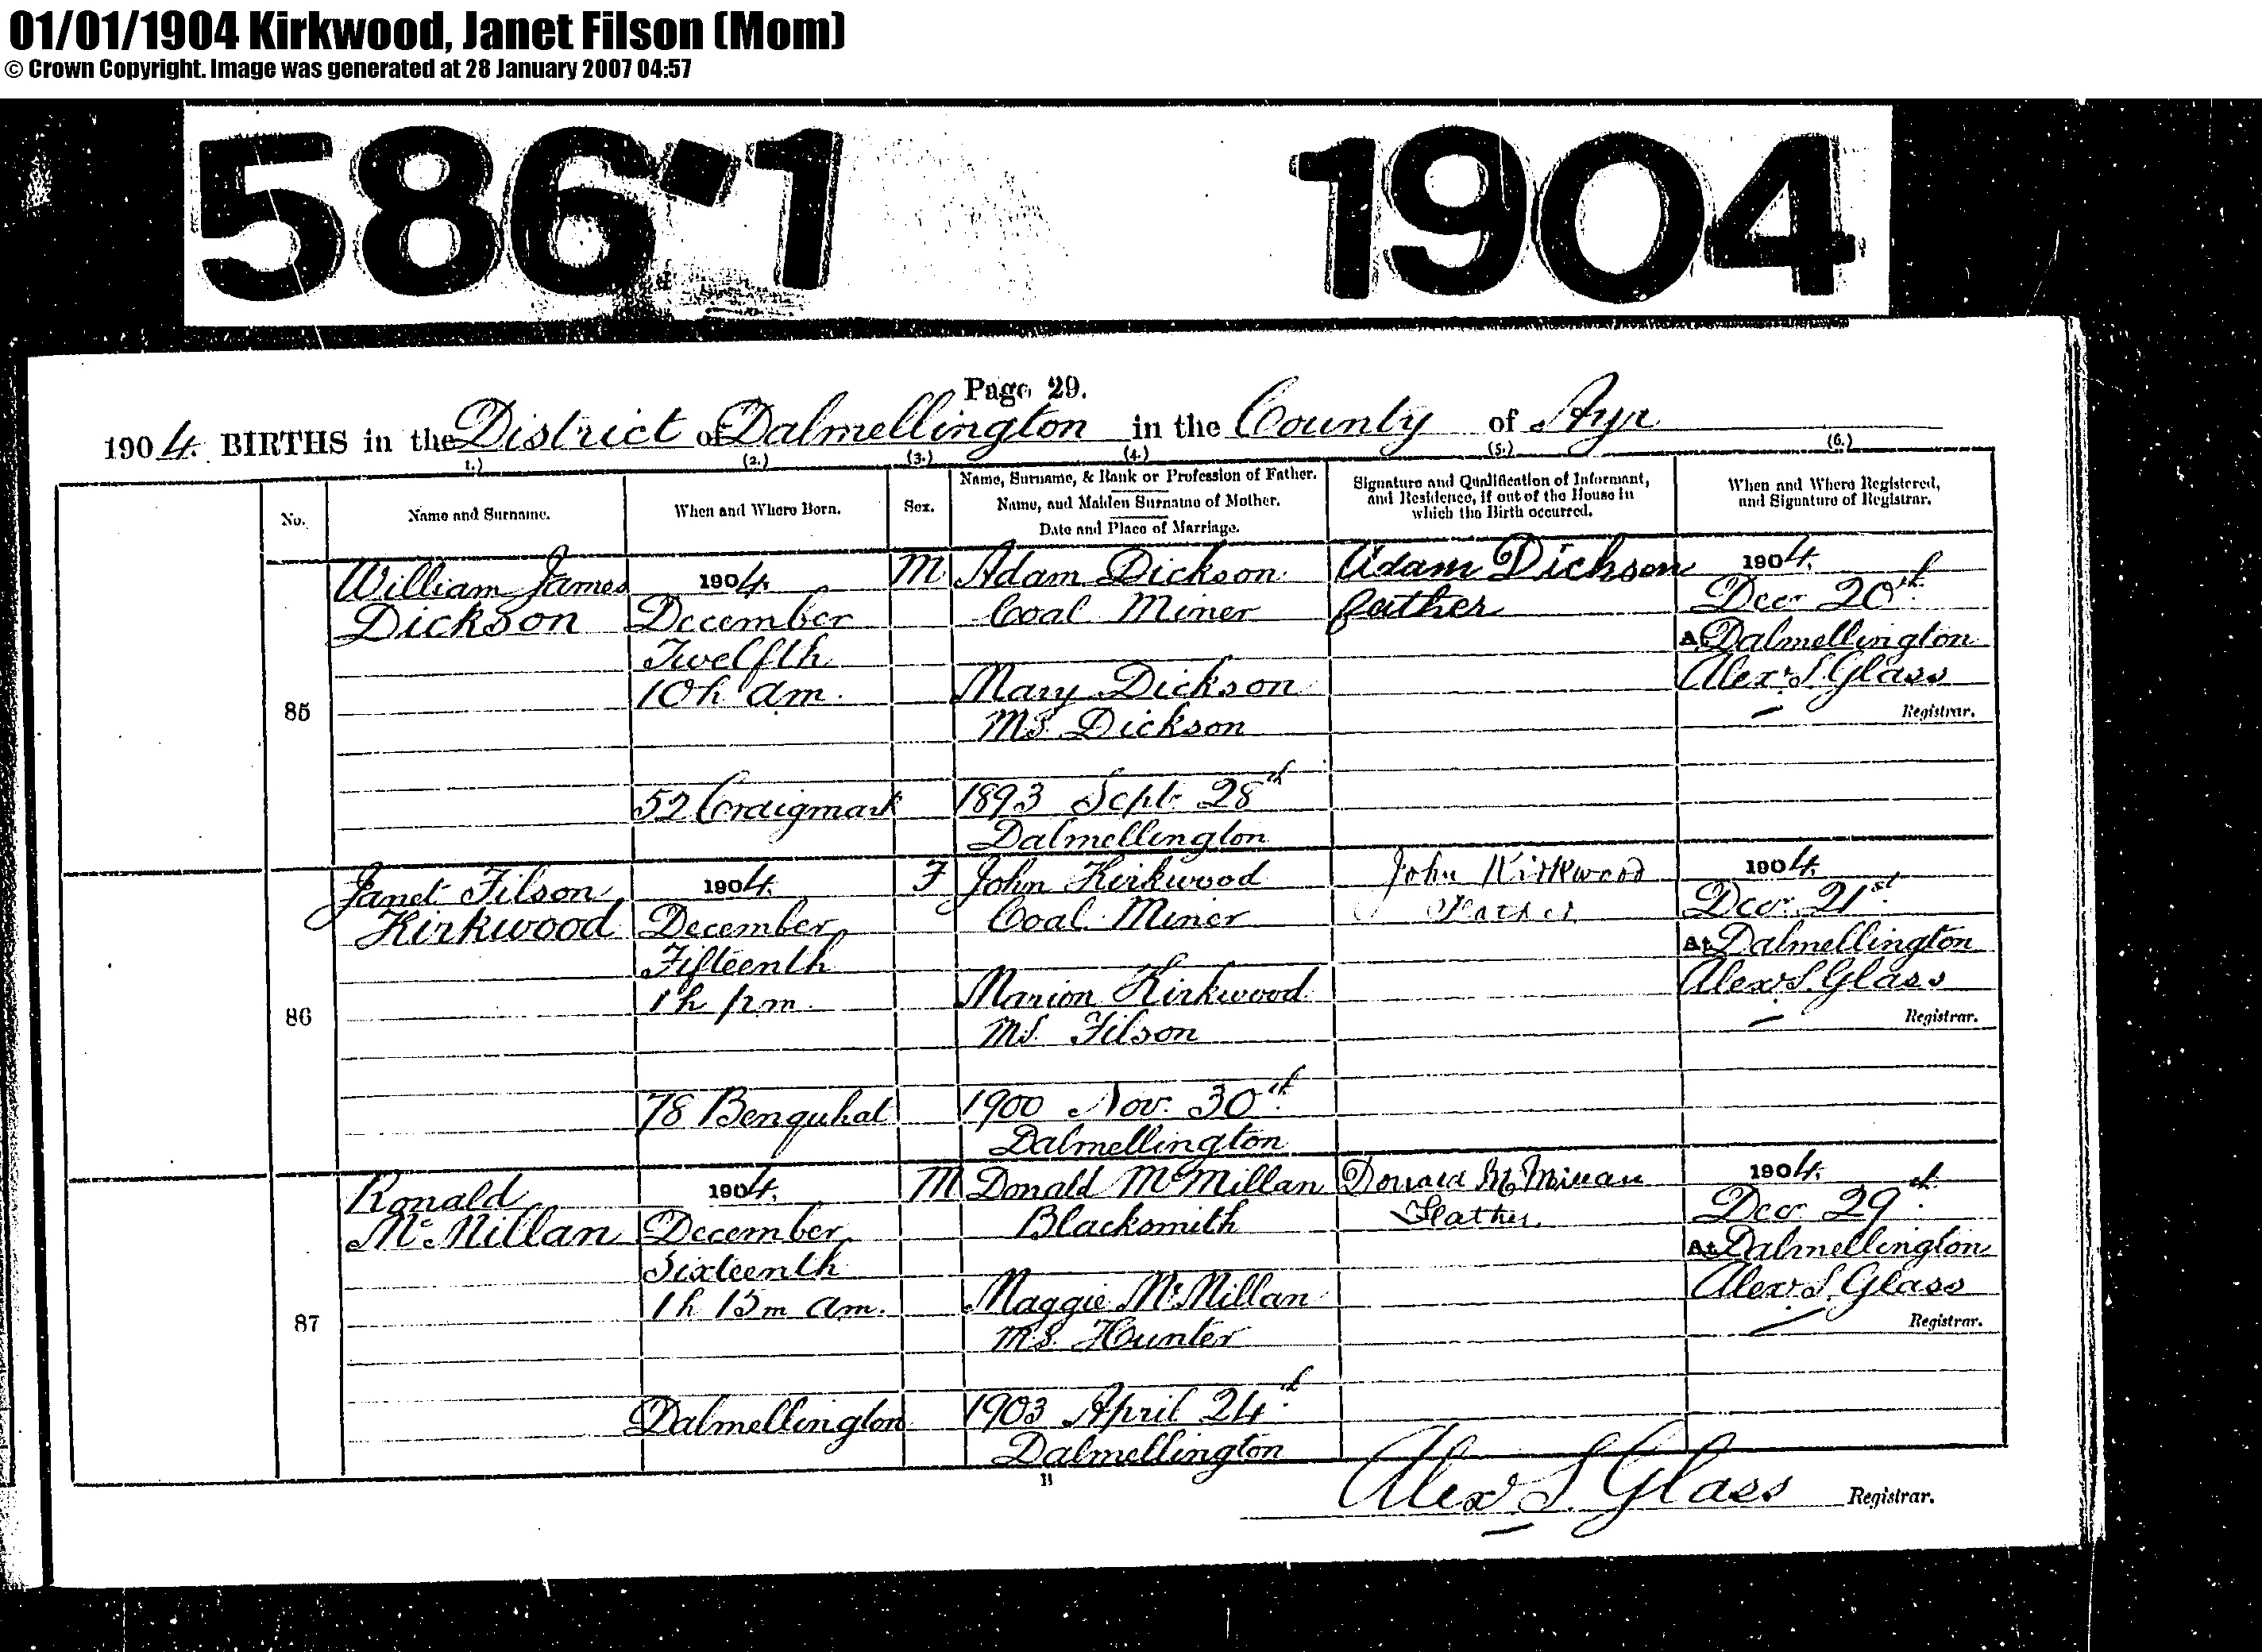 01/01/1904 Kirkwood, Janet Filson (Mom)
© Crown Copyright. Image was generated at 28 January 2007 04:57
586-1 1904
Page 29.
1904. BIRTHS in the District of Dalmellington in the County of Ayr
1.) (2.) (3.) (4.) (5.) (6.)
No.
Name and Surname.
When and Where Born.
Sex.
Name, Surname, & Rank or Profession of Father.
Name, and Maiden Surname of Mother.
Date and Place of Marriage.
Signature and Qualification of Informant,
and Residence, if out of the House in
which the Birth occurred.
When and Where Registered,
and Signature of Registrar.
85
William James
Dickson
1904.
December
Twelfth
10h am.
52 Craigmark
M
Adam Dickson
Coal Miner
Mary Dickson
M.S. Dickson
1893 Sept. 28th
Dalmellington
Adam Dickson
father
1904.
Decr 20th
At Dalmellington
Alexr S. Glass
Registrar.
86
Janet Filson
Kirkwood
1904.
December
Fifteenth
1h pm.
78 Benquhat
F
John Kirkwood
Coal Miner
Marion Kirkwood
M.S. Filson
1900 Nov. 30th
Dalmellington
John Kirkwood
Father
1904.
Decr 21st
At Dalmellington
Alexr S. Glass
Registrar.
87
Ronald
McMillan
1904.
December
Sixteenth
1h 15m am.
Dalmellington
M
Donald McMillan
Blacksmith
Maggie McMillan
M.S. Hunter
1903 April 24th
Dalmellington
Donald McMillan
Father.
1904.
Decr 29th
At Dalmellington
Alexr S. Glass
Registrar.
Alexr S. Glass Registrar.